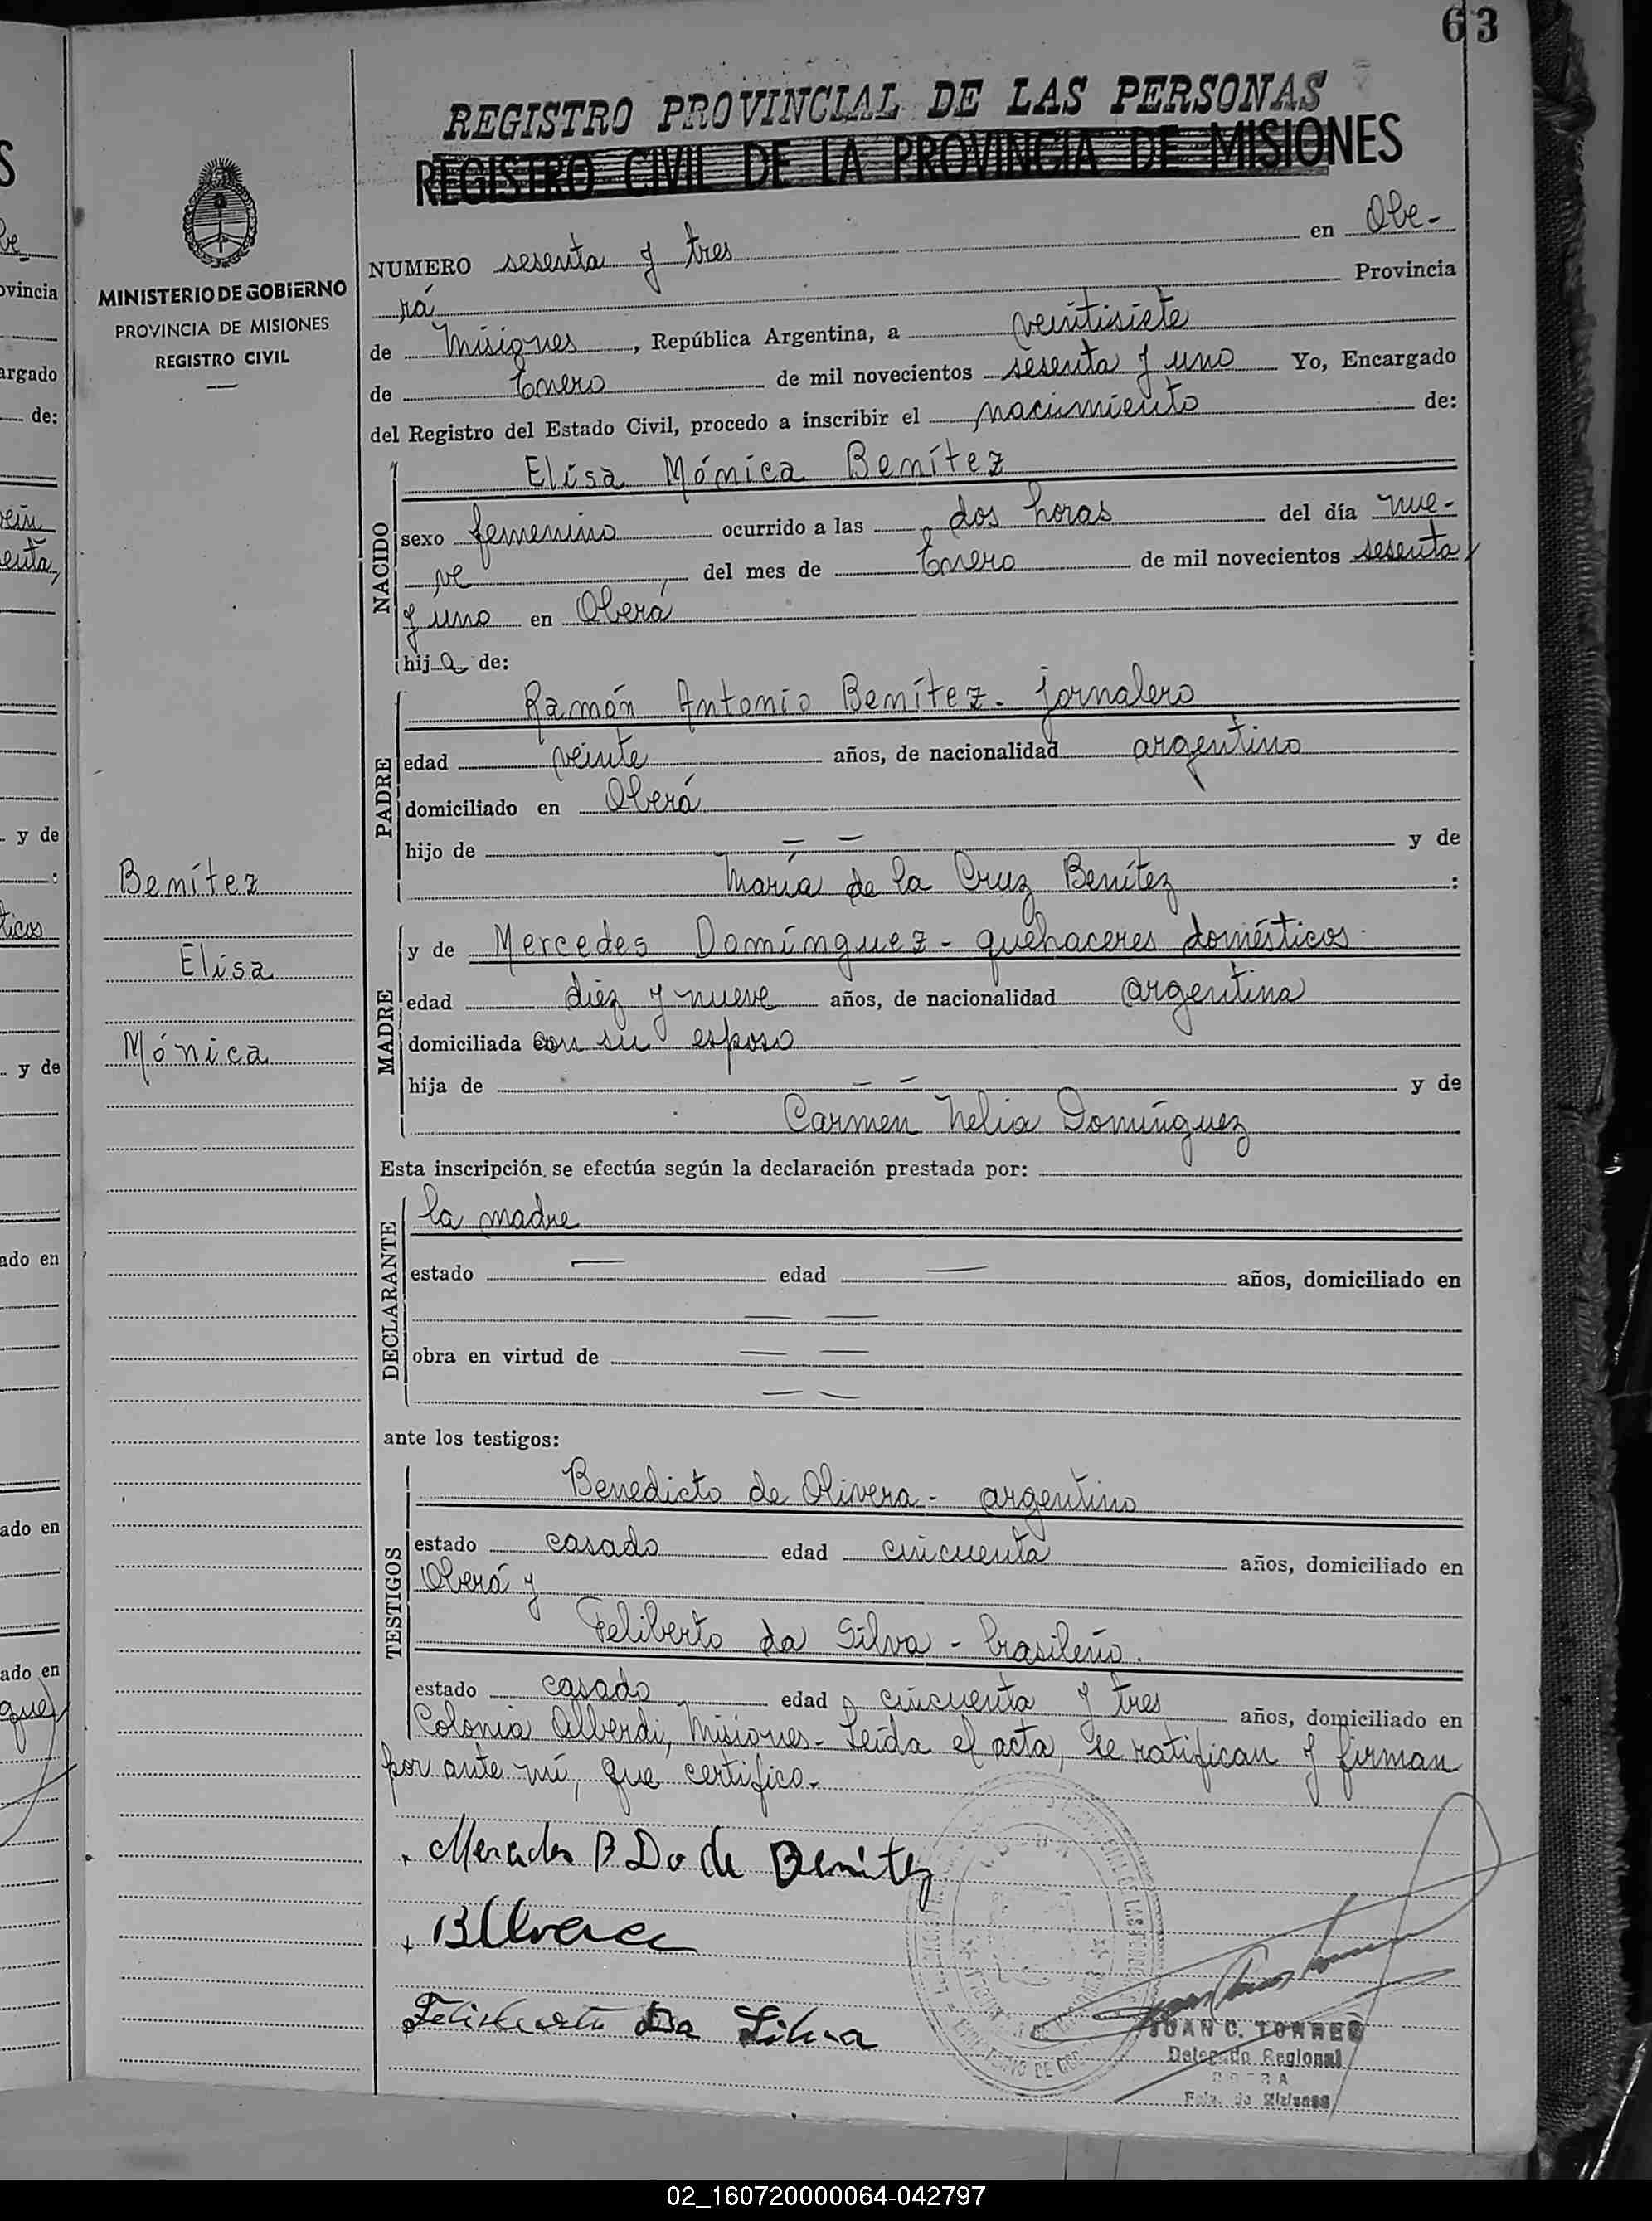 63
REGISTRO PROVINCIAL DE LAS PERSONAS
REGISTRO CIVIL DE LA PROVINCIA DE MISIONES
MINISTERIO DE GOBIERNO
PROVINCIA DE MISIONES
REGISTRO CIVIL
NUMERO sesenta y tres en Obe-
rá Provincia
de Misiones, República Argentina, a veintisiete
de Enero de mil novecientos sesenta y uno Yo, Encargado
del Registro del Estado Civil, procedo a inscribir el nacimiento de:
NACIDO
Elisa Mónica Benítez
sexo femenino ocurrido a las dos horas del día nue-
ve, del mes de Enero de mil novecientos sesenta
y uno en Oberá
hija de:
PADRE
Ramón Antonio Benítez - jornalero
edad veinte años, de nacionalidad argentino
domiciliado en Oberá
hijo de — — y de
María de la Cruz Benítez :
Benítez
Elisa
Mónica
MADRE
y de Mercedes Domínguez - quehaceres domésticos
edad diez y nueve años, de nacionalidad argentina
domiciliada con su esposo
hija de — — y de
Carmen Nelia Domínguez
Esta inscripción se efectúa según la declaración prestada por:
DECLARANTE
la madre
estado — edad — años, domiciliado en
— —
obra en virtud de — —
— —
ante los testigos:
TESTIGOS
Benedicto de Olivera - argentino
estado casado edad cincuenta años, domiciliado en
Oberá y
Feliberto da Silva - brasileño.
estado casado edad cincuenta y tres años, domiciliado en
Colonia Alberdi, Misiones - Leída el acta, se ratifican y firman
por ante mí, que certifico.
Mercedes B Do de Benitez
Da Silva
JUAN C. TORRES
Delegado Regional
OBERA
Pcia. de Misiones
02_160720000064-042797